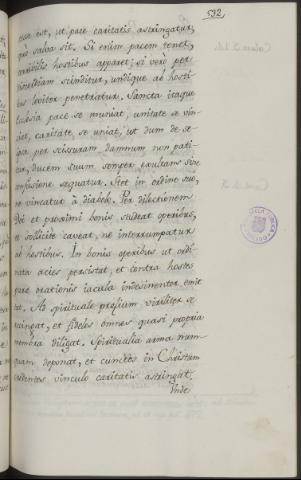 532.
est, ut pace caritatis astringatur,
salva sit. Si enim pacem tenet,
terribilis hostibus apparet; si verò per
scinditur, undique ab hosti
leviter penetratur. Sancta itaque
Ecclesia pace se muniat, unitate se vin
ciat, caritate, se uniat, ut dum de se
ipsa per scissuram damnum non pati
tur, ducem suum semper exultans sine
confusione sequatur. Stet in ordine suo,
ne vincatur à diabolo. Per dilectionem
Dei et proximi bonis studeat operibus,
et sollicite caveat, ne interrumpatur
ab hostibus. In bonis operibus ut ordi
nata acies persistat, et contra hostes
suae orationis jacula indesinenter emit
tat. Ad spirituale praelium viriliter se
accingat, et fideles omnes quasi propria
membra diligat. Spiritualia arma num
quam deponat, et cunctos in Christum
credentes vinculo caritatis astringat.
Unde